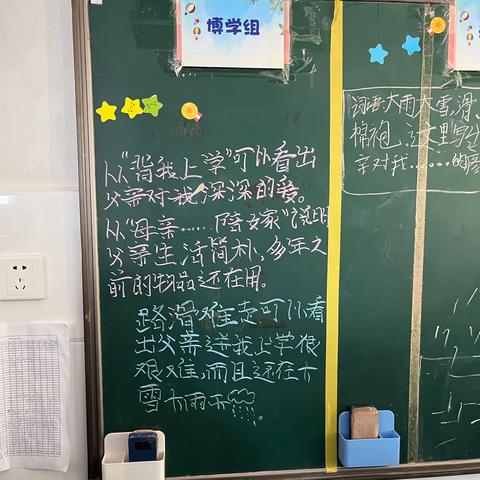 博学组
从“背我上学”可以看出
父亲对我深深的爱。
从“母亲……陪嫁”说明
父亲生活简朴,多年之
前的物品还在用。
路滑难走可以看
出父亲送我上学很
艰难,而且还在大
雪大雨天
词语:大雨大雪,滑、
棉袍,这文里写
亲对我……的